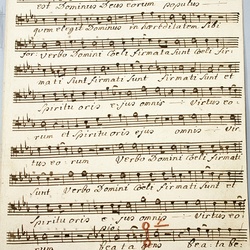 est Dominus Deus eorum populus
quem elegit Dominus in hereditatem sibi
Verbo Domini Coeli firmati Sunt Coeli fir-
mati Sunt firmati Sunt firmati Sunt et
Spiritu oris ejus omnis Virtus eo-
rum et Spiritu oris ejus omnis vir-
tus eo-rum Verbo Domini Coeli firmati
Sunt, Verbo Domini Coeli firmati Sunt et
Spiritu oris ejus omnis Virtus eo-
rum beata gens beata be-